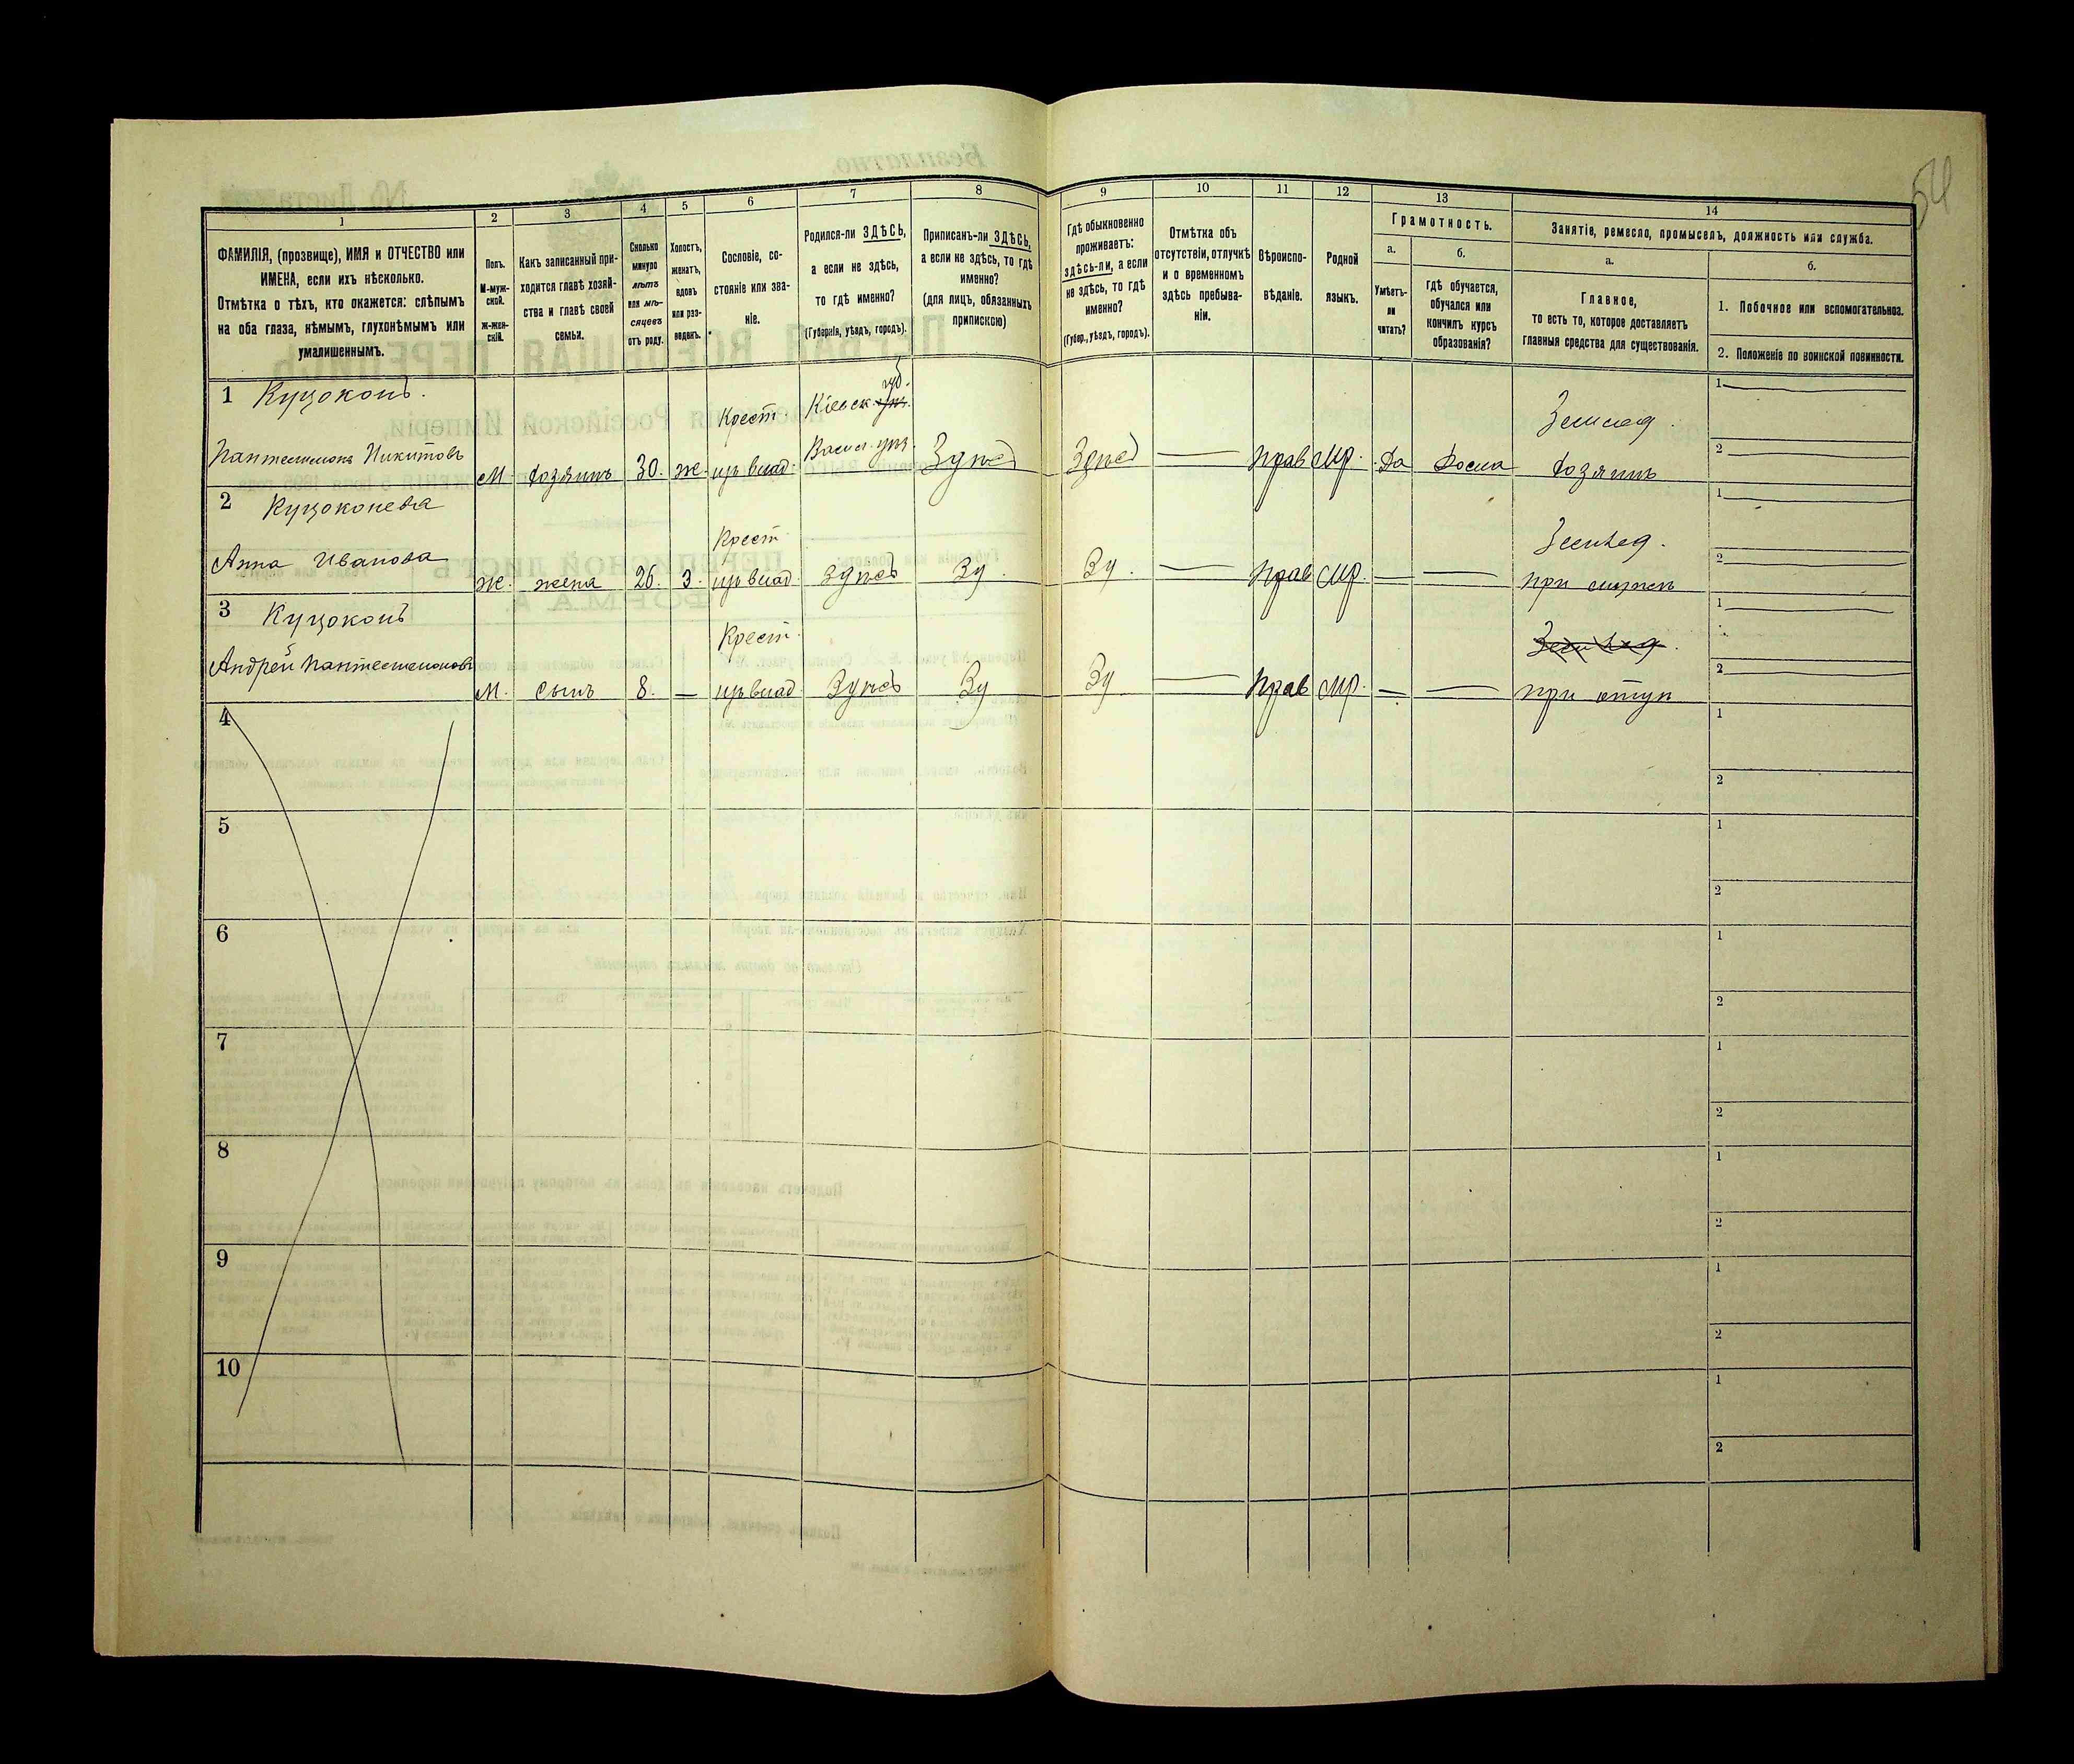 54
1 2 3 4 5 6 7 8 9 10 11 12 13 14
ФАМИЛІЯ, (прозвище), ИМЯ и ОТЧЕСТВО или
ИМЕНА, если ихъ нѣсколько.
Отмѣтка о тѣхъ, кто окажется: слѣпымъ
на оба глаза, нѣмымъ, глухонѣмымъ или
умалишеннымъ.
Полъ.
М-муж-
ской.
ж-жен-
скій.
Какъ записанный при-
ходится главѣ хозяй-
ства и главѣ своей
семьи.
Сколько
минуло
лѣтъ
или мѣ-
сяцевъ
отъ роду.
Холостъ,
женатъ,
вдовъ
или раз-
веденъ.
Сословіе, со-
стояніе или зва-
ніе.
Родился-ли ЗДѢСЬ,
а если не здѣсь,
то гдѣ именно?
(Губернія, уѣздъ, городъ).
Приписанъ-ли ЗДѢСЬ,
а если не здѣсь, то гдѣ
именно?
(для лицъ, обязанныхъ
припискою)
Гдѣ обыкновенно
проживаетъ:
здѣсь-ли, а если
не здѣсь, то гдѣ
именно?
(Губер., уѣздъ, городъ).
Отмѣтка объ
отсутствіи, отлучкѣ
и о временномъ
здѣсь пребыва-
ніи.
Вѣроиспо-
вѣданіе.
Родной
языкъ.
Грамотность.
а.
Умѣетъ-
ли
читать?
б.
гдѣ обучается,
обучался или
кончилъ курсъ
образованія?
Занятіе, ремесло, промыселъ, должность или служба.
а.
Главное,
то есть то, которое доставляетъ
главныя средства для существованія.
б.
1. Побочное или вспомогательное.
2. Положеніе по воинской повинности.
1 Куцоконь.
Пантелимонъ Никитовъ
М. хозяинъ 30. ж.
Крест.
Кіевск. губ.
Здѣсь Здѣсь — прав мр. Да дома
Землед.
хозяинъ
1
2
2 Куцоконева
Анна Иванова
ж. жена 26. з.
Крест
здѣсь Зд. Зд. — прав мр. — —
Землед.
при мужѣ
1
2
3 Куцоконь
Андрей Пантелимоновъ
М. сынъ 8. —
Крест.
Здѣсь Зд Зд — прав мр. — —
Землед.
при отцѣ
1
2
4
1
2
5
1
2
6
1
2
7
1
2
8
1
2
9
1
2
10
1
2